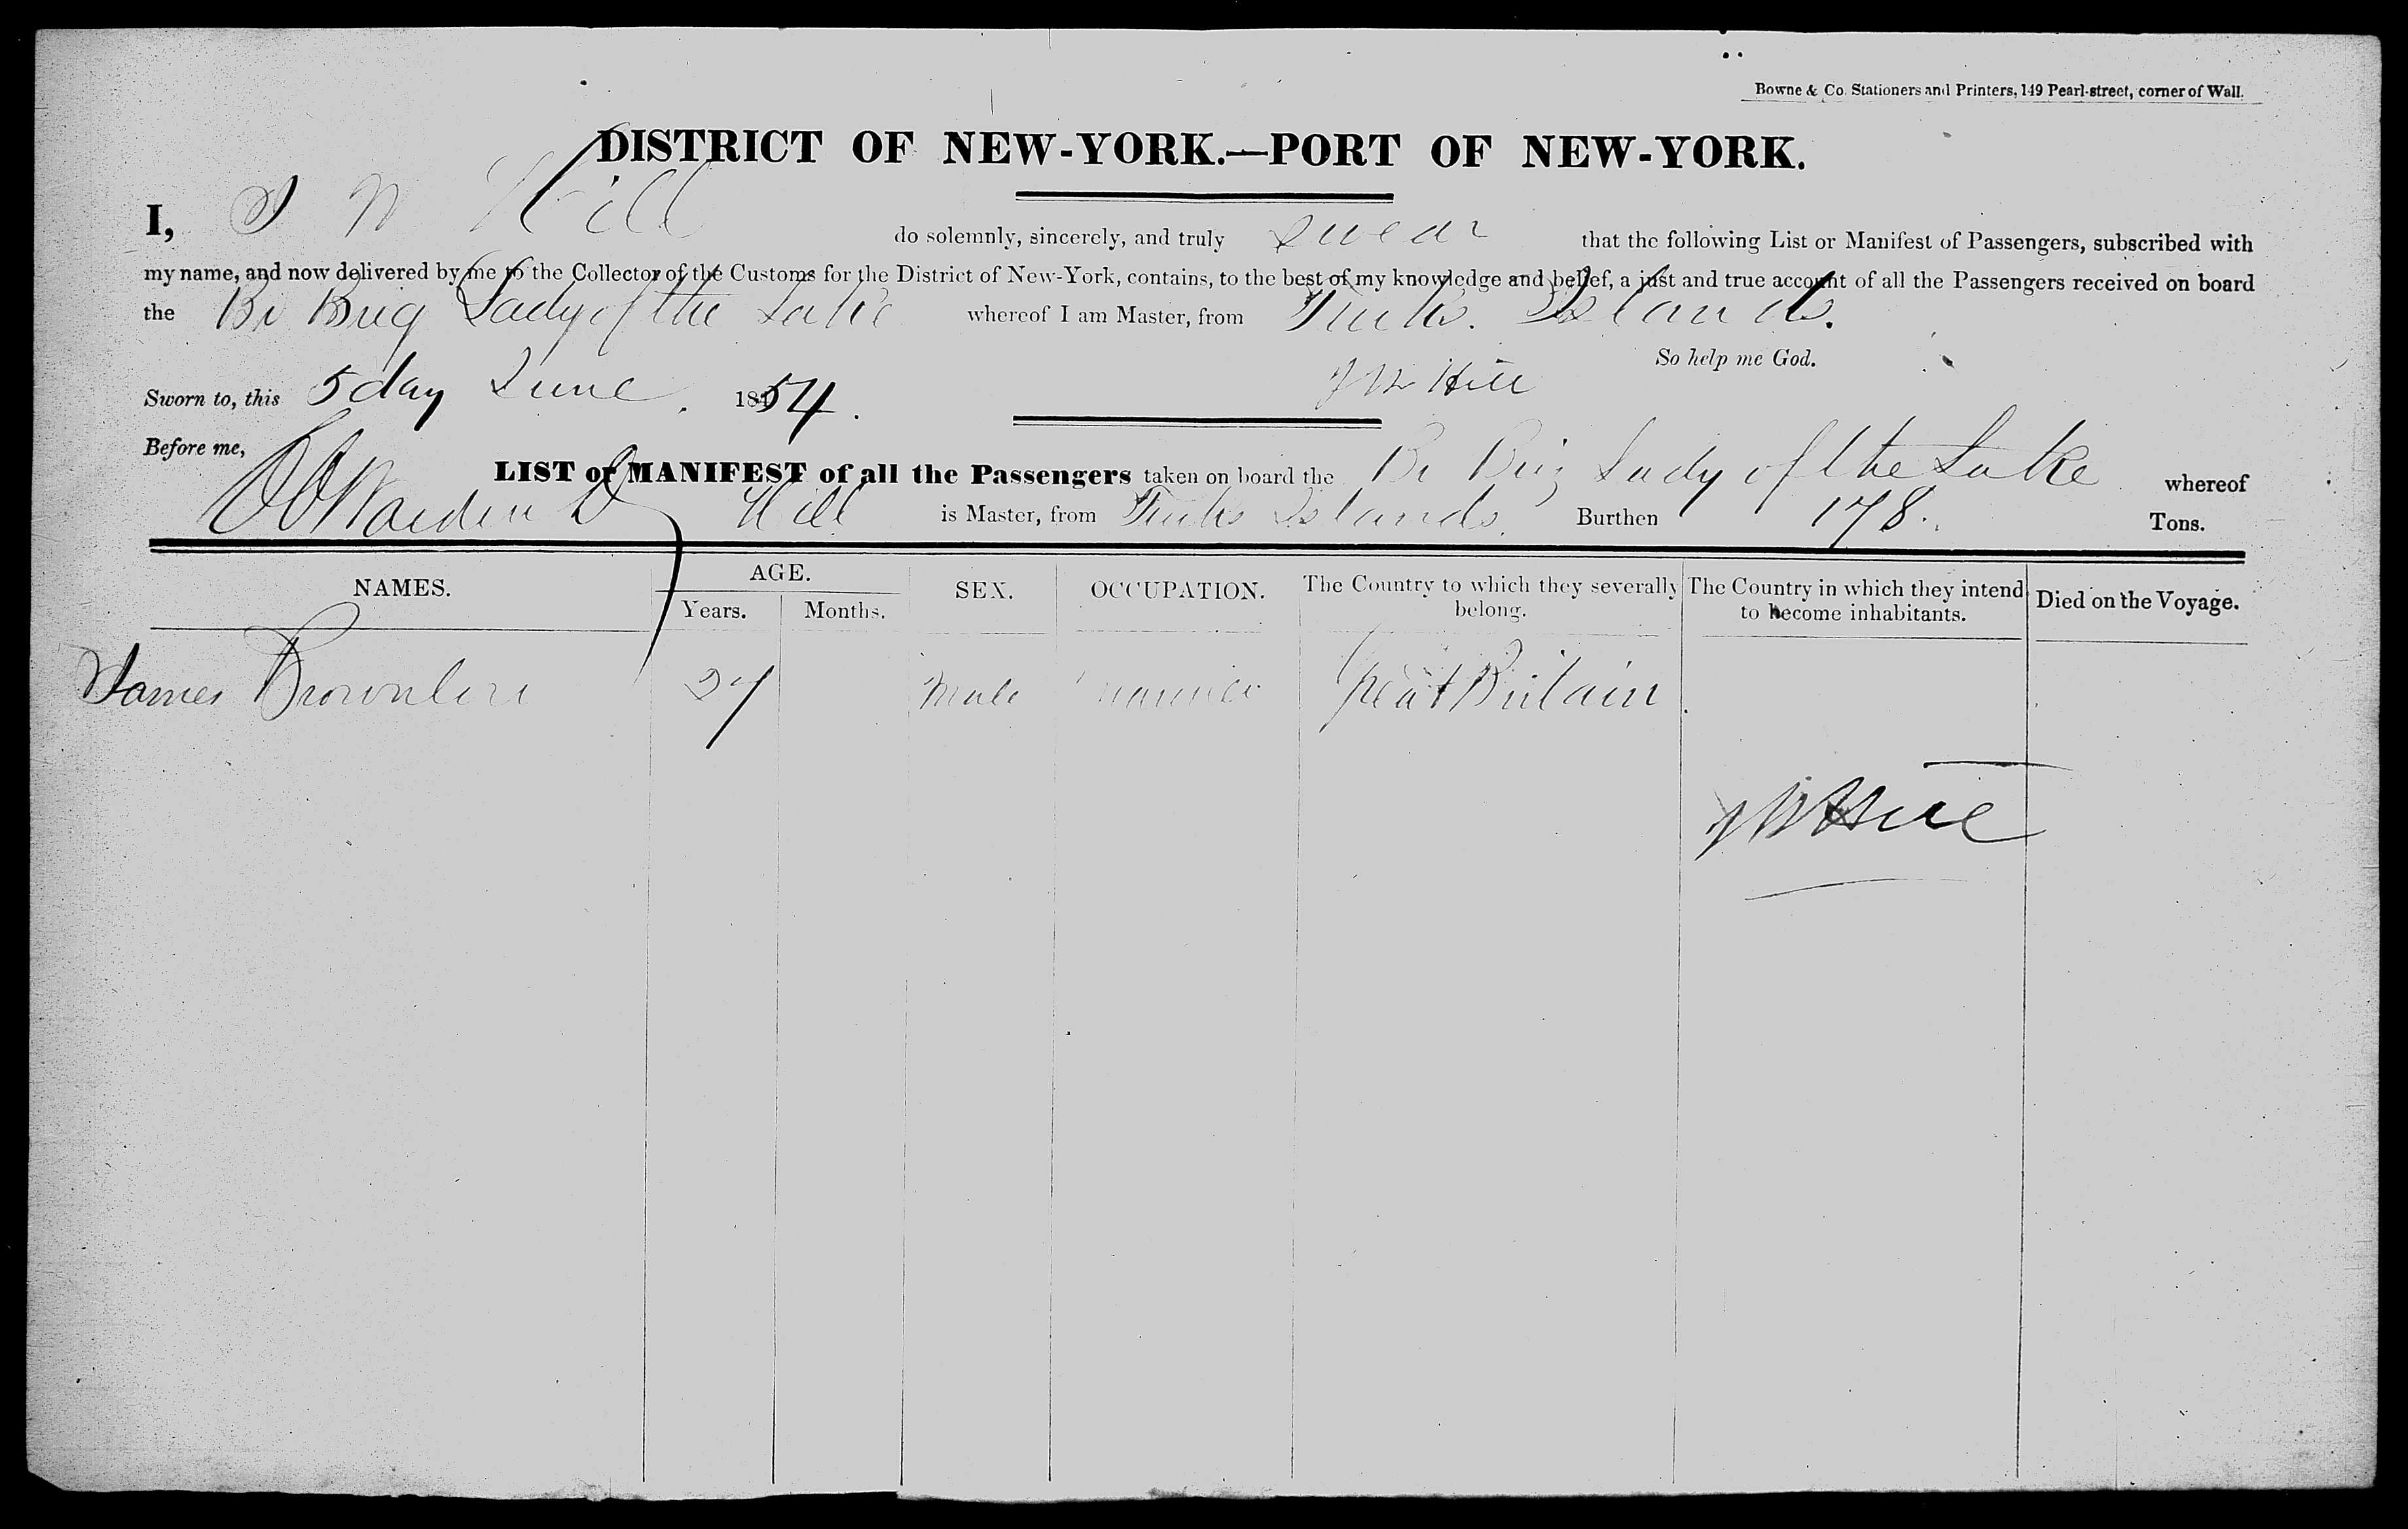 Bowne & Co. Stationers and Printers, 149 Pearl-street, corner of Wall.
DISTRICT OF NEW-YORK.—PORT OF NEW-YORK.
I, J W Hill do solemnly, sincerely, and truly swear that the following List or Manifest of Passengers, subscribed with
my name, and now delivered by me to the Collector of the Customs for the District of New-York, contains, to the best of my knowledge and belief, a just and true account of all the Passengers received on board
the Br Brig Lady of the Lake whereof I am Master, from Turks Islands.
So help me God.
Sworn to, this 5 day June 1854. J W Hill
Before me,
LIST or MANIFEST of all the Passengers taken on board the Br Brig Lady of the Lake whereof
Hill is Master, from Turks Islands. Burthen 178 Tons.
NAMES. AGE. SEX. OCCUPATION. The Country to which they severally belong. The Country in which they intend to become inhabitants. Died on the Voyage.
Years. Months.
James Brownlow 27 Male mariner Great Britain
J W Hill